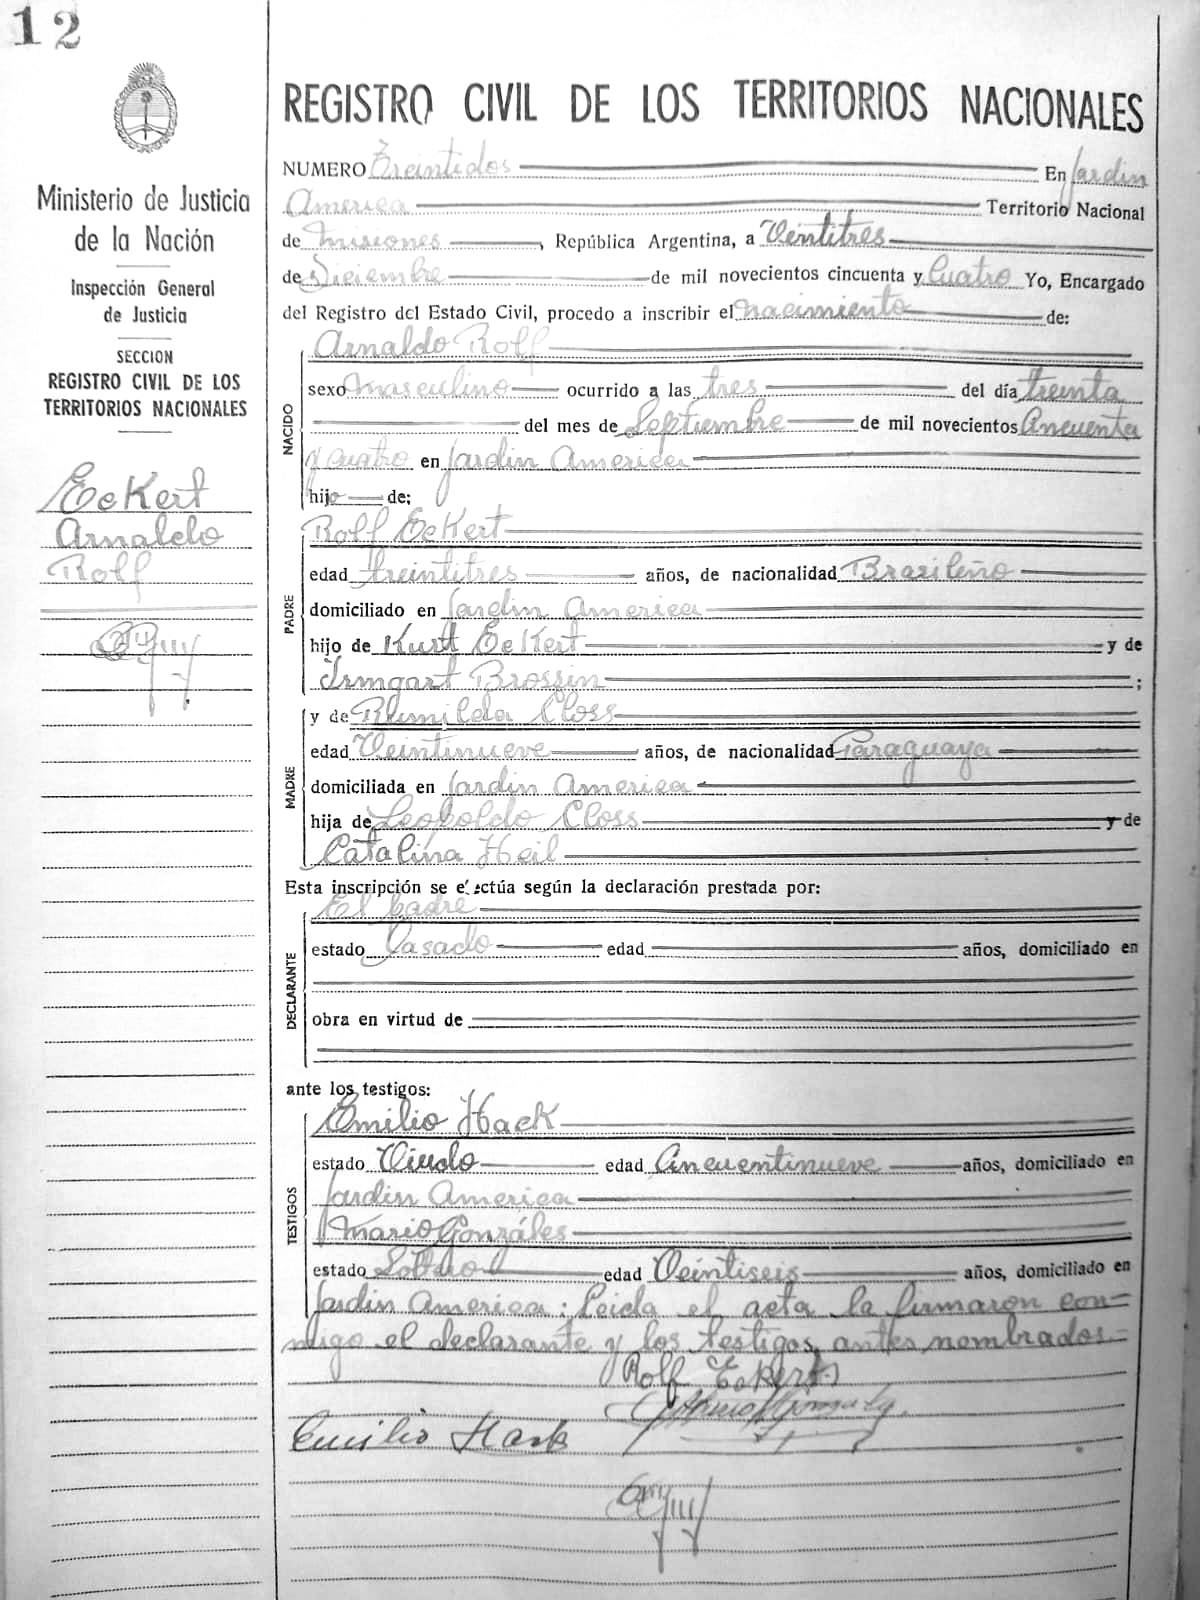 12
REGISTRO CIVIL DE LOS TERRITORIOS NACIONALES
Ministerio de Justicia
de la Nación
Inspección General
de Justicia
SECCION
REGISTRO CIVIL DE LOS
TERRITORIOS NACIONALES
Eckert
Arnaldo
Rolf
NUMERO Treintidos En Jardin
America Territorio Nacional
de Misiones, República Argentina, a Veintitres
de Diciembre de mil novecientos cincuenta y Cuatro Yo, Encargado
del Registro del Estado Civil, procedo a inscribir el nacimiento de:
NACIDO
Arnaldo Rolf
sexo masculino ocurrido a las tres del día treinta
del mes de Septiembre de mil novecientos Cincuenta
y cuatro en Jardin America
hijo de;
PADRE
Rolf Eckert
edad treintitres años, de nacionalidad Brasileño
domiciliado en Jardin America
hijo de Kurt Eckert y de
Irmgart Brossin ;
MADRE
y de Rumilda Closs
edad Veintinueve años, de nacionalidad Paraguaya
domiciliada en Jardin America
hija de Leopoldo Closs y de
Catalina Heil
Esta inscripción se efectúa según la declaración prestada por:
DECLARANTE
El padre
estado Casado edad años, domiciliado en
obra en virtud de
ante los testigos:
TESTIGOS
Emilio Hack
estado Viudo edad Cincuentinueve años, domiciliado en
Jardin America
Mario Gonzáles
estado Soltero edad Veintiseis años, domiciliado en
Jardin America: Leida el acta la firmaron con-
migo el declarante y los testigos antes nombrados.-
Rolf Eckert
Emilio Hack